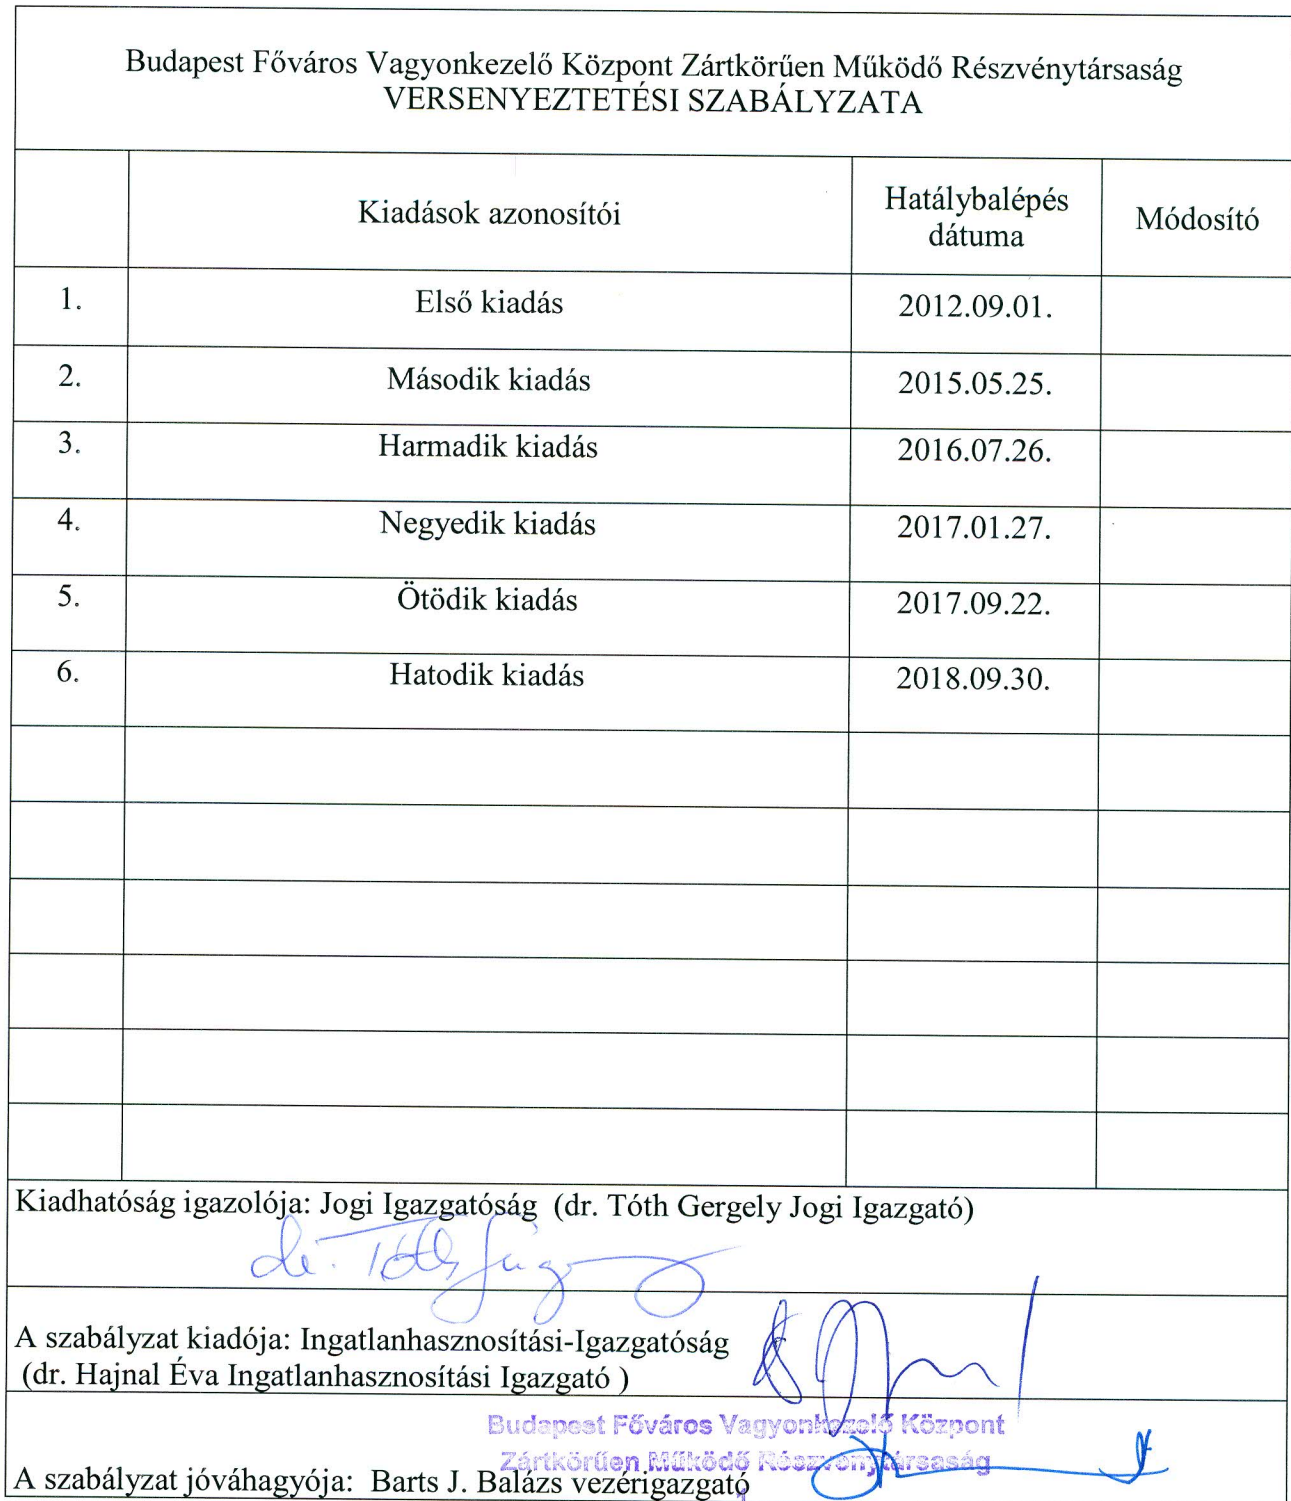 Budapest Főváros Vagyonkezelő Központ Zártkörűen Működő Részvénytársaság
VERSENYEZTETÉSI SZABÁLYZATA
Kiadások azonosítói Hatálybalépés dátuma Módosító
1. Első kiadás 2012.09.01.
2. Második kiadás 2015.05.25.
3. Harmadik kiadás 2016.07.26.
4. Negyedik kiadás 2017.01.27.
5. Ötödik kiadás 2017.09.22.
6. Hatodik kiadás 2018.09.30.
Kiadhatóság igazolója: Jogi Igazgatóság (dr. Tóth Gergely Jogi Igazgató)
dr. Tóth
A szabályzat kiadója: Ingatlanhasznosítási-Igazgatóság
(dr. Hajnal Éva Ingatlanhasznosítási Igazgató )
Budapest Főváros Vagyonkezelő Központ
Zártkörűen Működő Részvénytársaság
A szabályzat jóváhagyója: Barts J. Balázs vezérigazgató